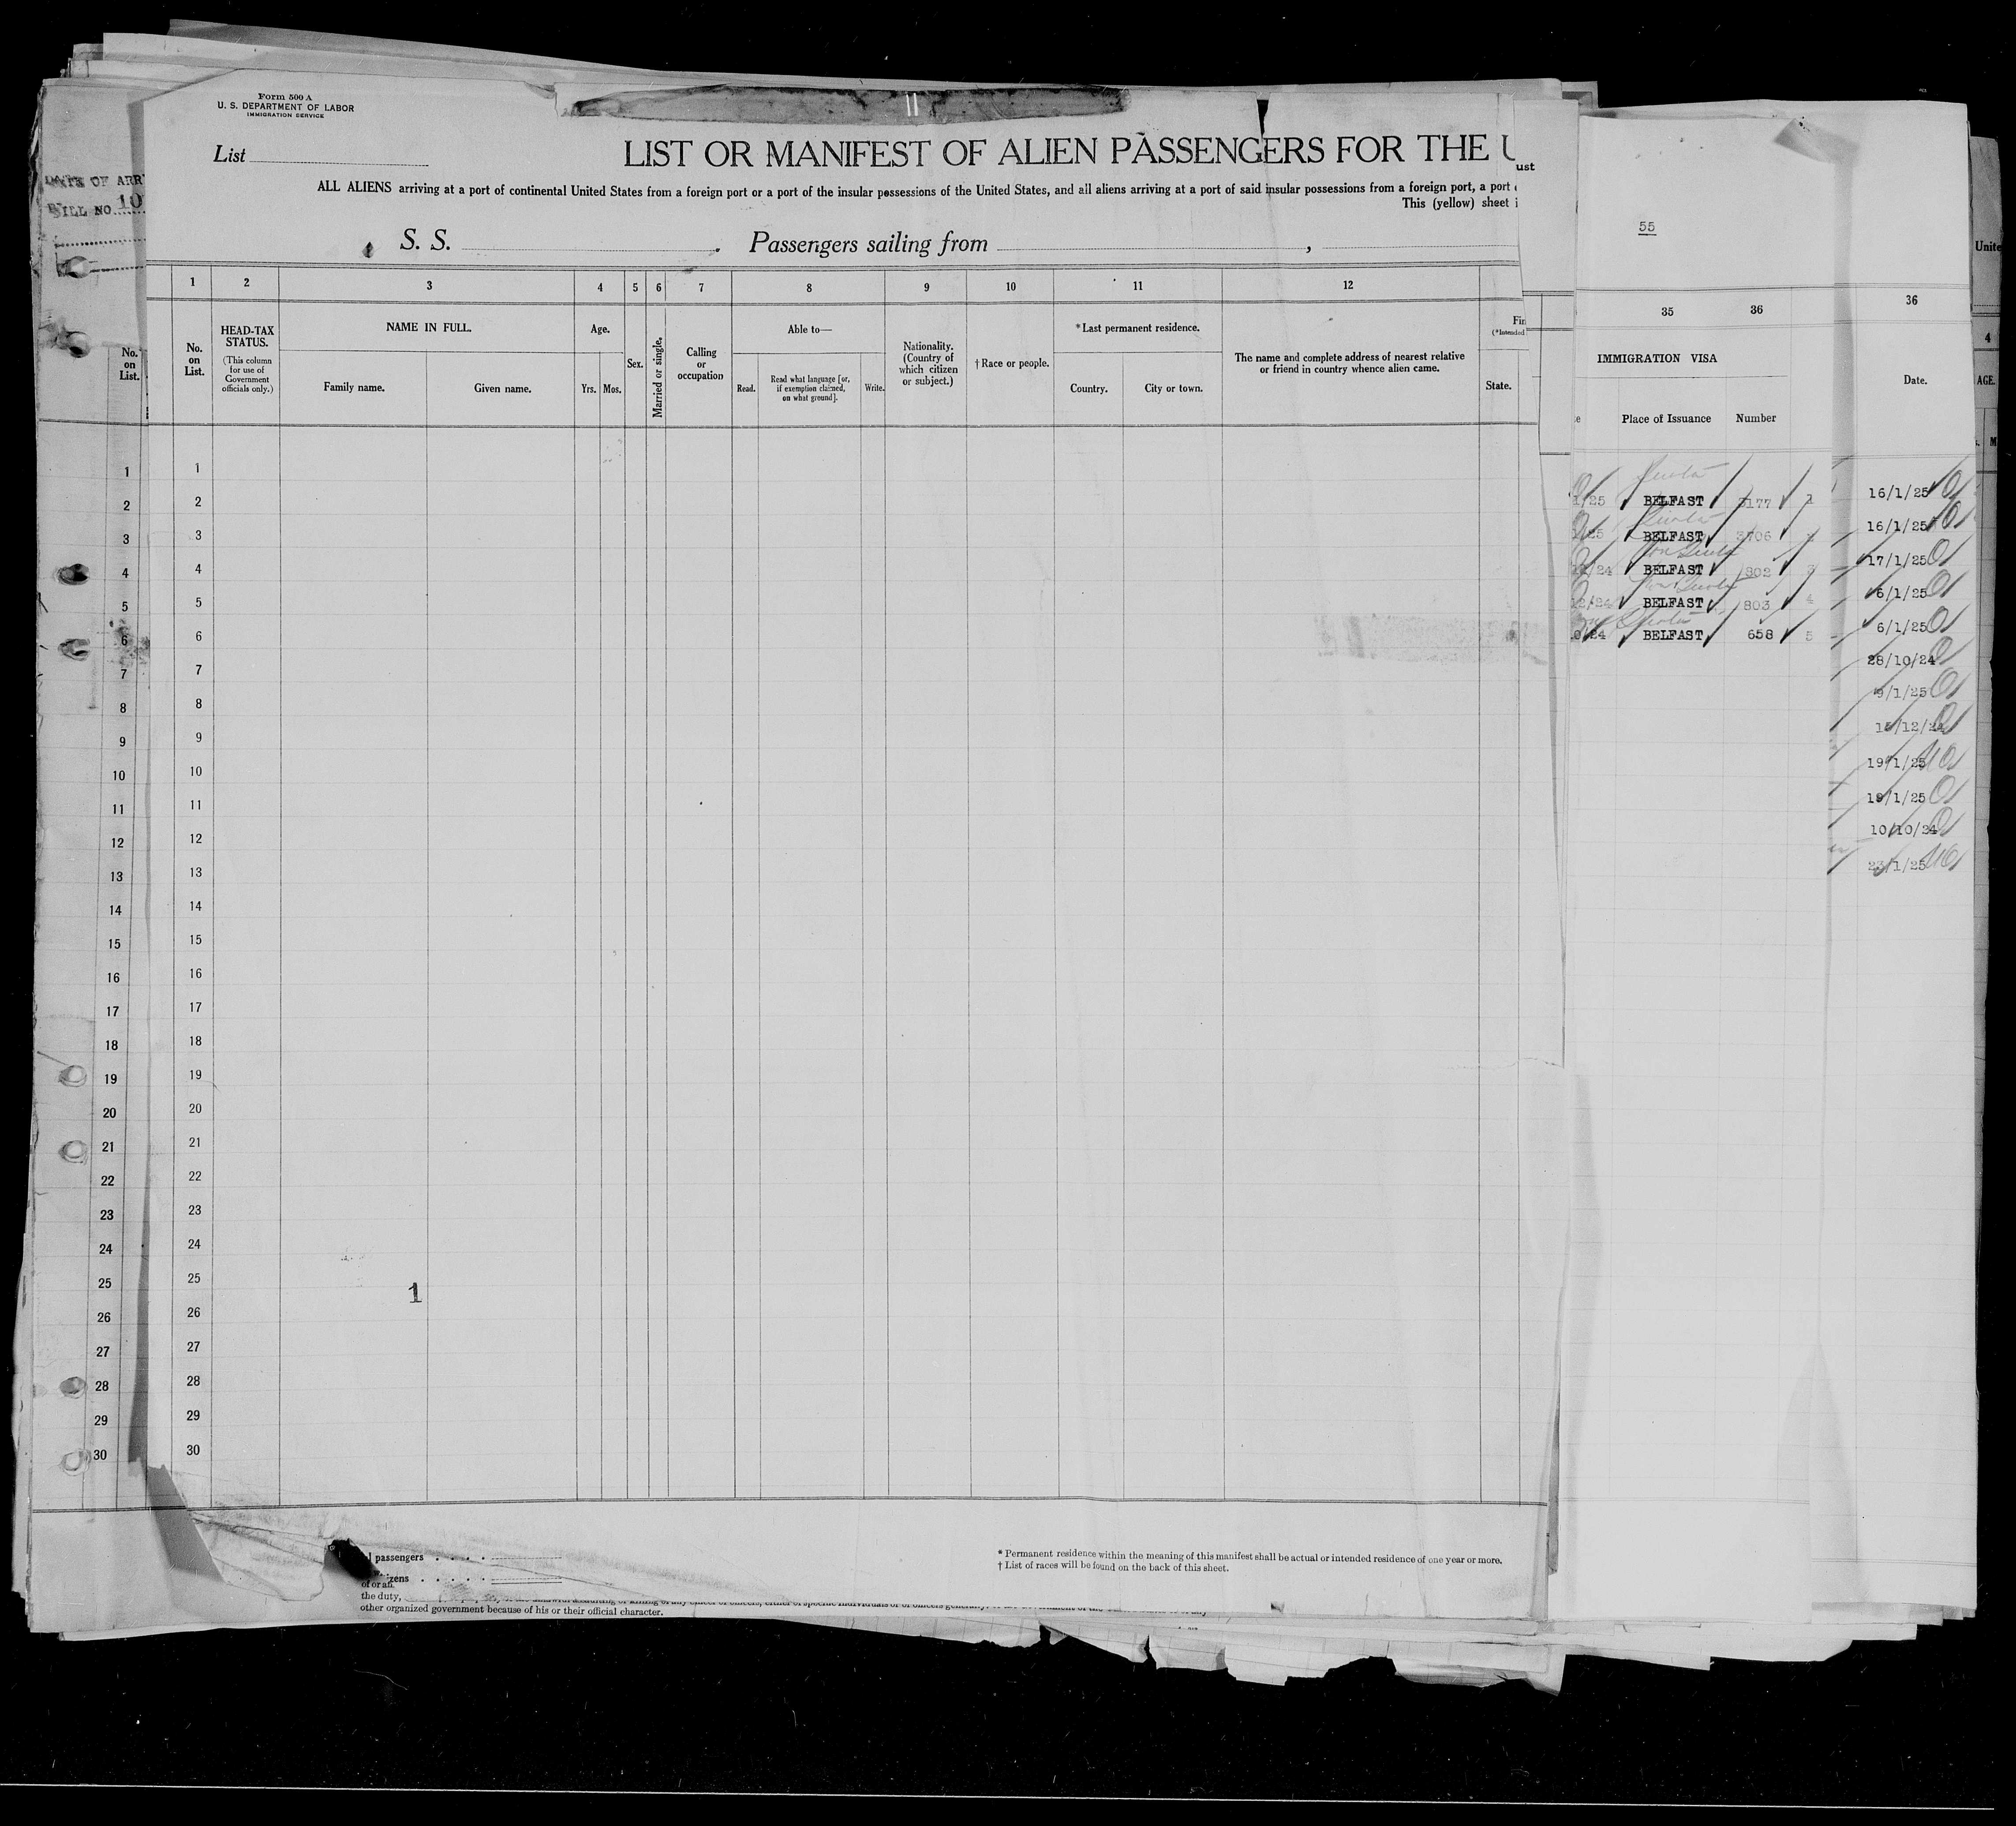 Form 500 A
U. S. DEPARTMENT OF LABOR
IMMIGRATION SERVICE
List
LIST OR MANIFEST OF ALIEN PASSENGERS FOR THE U
ust
DATE OF ARR
BILL NO. 10
ALL ALIENS arriving at a port of continental United States from a foreign port or a port of the insular possessions of the United States, and all aliens arriving at a port of said insular possessions from a foreign port, a port
This (yellow) sheet i
55
Unite
S. S. Passengers sailing from ,
1 2 3 4 5 6 7 8 9 10 11 12
35 36
36
4
No. on List.
No. on List.
HEAD-TAX STATUS.
(This column for use of Government officials only.)
NAME IN FULL.
Family name.
Given name.
Age.
Yrs. Mos.
Sex.
Married or single.
Calling or occupation
Able to—
Read.
Read what language [or, if exemption claimed, on what ground].
Write.
Nationality. (Country of which citizen or subject.)
†Race or people.
*Last permanent residence.
Country.
City or town.
The name and complete address of nearest relative or friend in country whence alien came.
Fin
(*Intended
State.
IMMIGRATION VISA
Place of Issuance
Number
Date.
AGE.
M
1 1
2 2
3 3
4 4
5 5
6 6
7 7
8 8
9 9
10 10
11 11
12 12
13 13
14 14
15 15
16 16
17 17
18 18
19 19
20 20
21 21
22 22
23 23
24 24
25 25
26 26
27 27
28 28
29 29
30 30
1
1/25 BELFAST 3177 1
/25 BELFAST 3706
/24 BELFAST 302 3
12/24 BELFAST 803 4
0/24 BELFAST 658 5
16/1/25
16/1/25
17/1/25
6/1/25
6/1/25
28/10/24
9/1/25
15/12/24
19/1/25
19/1/25
10/10/24
23/1/25
passengers
zens
* Permanent residence within the meaning of this manifest shall be actual or intended residence of one year or more.
† List of races will be found on the back of this sheet.
of or an
the duty,
other organized government because of his or their official character.